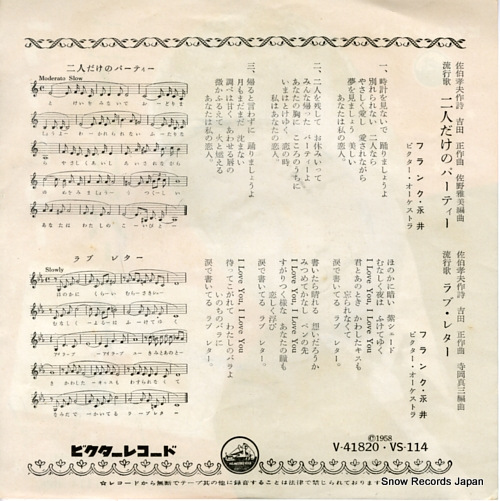 佐伯孝夫作詩 吉田 正作曲 佐野雅美編曲
流行歌 二人だけのパーティー
フランク・永井
ビクター・オーケストラ
一、時計を見ないで 踊りましょうよ
別れられない 二人なら
やさしく愛し 愛されながら
夢を見ましょう 美しい
あなたは私の 恋人。
二、二人を残して お休みいって
みんな帰った パーティーよ
あなたの胸に こころのうちに
いまはとけゆく 恋の時
私はあなたの 恋人。
三、帰ると言わずに 踊りましょうよ
月もまだまだ 沈まない
調べは甘く あわせる唇の
微かふるえて 火と燃える
あなたは私の 恋人。
二人だけのパーティー
Moderato Slow
佐伯孝夫作詩 吉田 正作曲 寺岡真三編曲
流行歌 ラブ・レター
フランク・永井
ビクター・オーケストラ
ほのかに暗い 紫シェード
むなしく夜は ふけてゆく
I Love You I Love You
君とあのとき かわしたキスも
忘れられなくて
涙で書いてる ラブ レター。
書いたら晴れる 想いだろうか
みつめてかなし ペンの先
I Love You I Love You
すがりつく様な あなたの瞳も
悲しく浮び
涙で書いてる ラブ レター。
I Love You I Love You
待ってこがれて わたしのバラよ
いのちのバラに
涙で書いてる ラブ レター。
ラブ レター
Slowly
ビクターレコード
Ⓟ1958
V-41820・VS-114
☆レコードから無断でテープ其の他に録音することは法律で禁じられております
Snow Records Japan